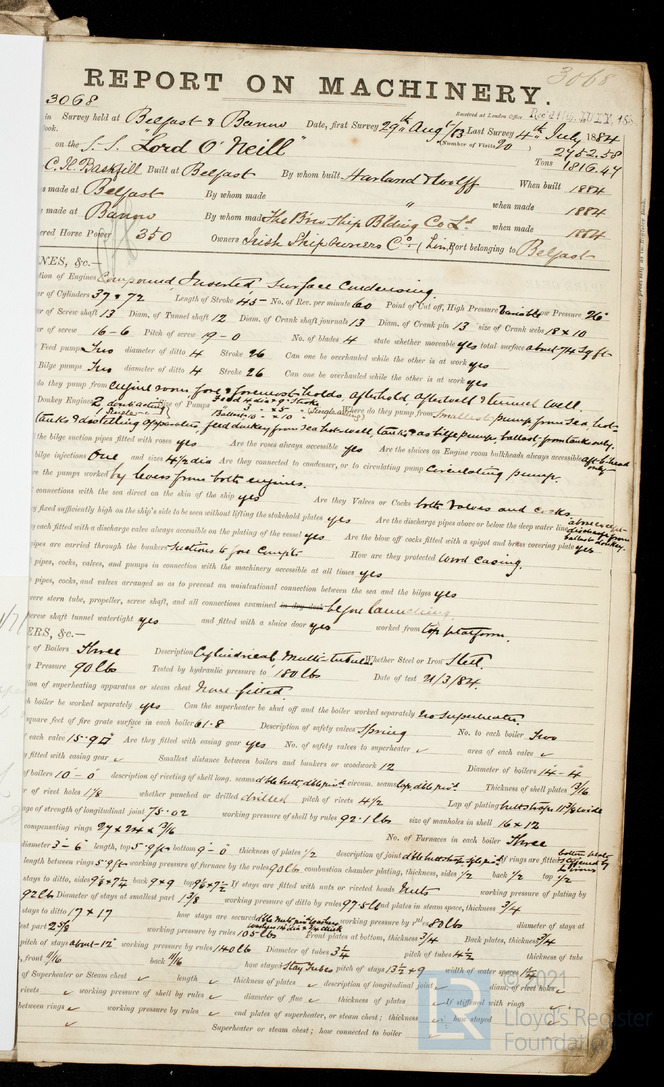 3068
REPORT ON MACHINERY.
3068
Received at London Office
Survey held at Belfast & Barrow Date, first Survey 29th Aug/83 Last Survey 4th July 1884
(Number of Visits 20)
on the S.S. "Lord O'Neill" Tons 2752.58
1816.47
Built at Belfast By whom built Harland & Wolff When built 1884
made at Belfast By whom made " when made 1884
made at Barrow By whom made The B'row Ship Blding Co Ld when made 1884
Horse Power 350 Owners Irish Ship Owners Co (Lim) Port belonging to Belfast
NES, &c.—
tion of Engines Compound Inverted Surface Condensing.
of Cylinders 37 & 72 Length of Stroke 45 No. of Rev. per minute 60 Point of Cut off, High Pressure Variable Low Pressure 26"
of Screw shaft 13 Diam. of Tunnel shaft 12 Diam. of Crank shaft journals 13 Diam. of Crank pin 13 size of Crank webs 18 x 10
of screw 16-6 Pitch of screw 19-0 No. of blades 4 state whether moveable yes total surface about 74 sq ft
Feed pumps Two diameter of ditto 4 Stroke 26 Can one be overhauled while the other is at work yes
Bilge pumps Two diameter of ditto 4 Stroke 26 Can one be overhauled while the other is at work yes
do they pump from engine room fore & foremost holds, afterhold afterwell & tunnel well.
Donkey Engines 2 Size of Pumps Where do they pump from Smallest, pump from sea, hot-
tanks & distilling apparatus, feed donkey from sea hotwell, tanks & as bilge pump, ballast from tanks only.
the bilge suction pipes fitted with roses yes Are the roses always accessible yes Are the sluices on Engine room bulkheads always accessible aft-bhead only
bilge injections One and sizes 4½ dia Are they connected to condenser, or to circulating pump Circulating pump.
the pumps worked by levers from both engines.
connections with the sea direct on the skin of the ship yes Are they Valves or Cocks both valves and cocks.
fixed sufficiently high on the ship's side to be seen without lifting the stokehold plates yes Are the discharge pipes above or below the deep water line above except discharge from ballast donkey.
each fitted with a discharge valve always accessible on the plating of the vessel yes Are the blow off cocks fitted with a spigot and brass covering plate yes
pipes are carried through the bunkers Suctions to fore Compts How are they protected Wood Casing.
pipes, cocks, valves, and pumps in connection with the machinery accessible at all times yes
pipes, cocks, and valves arranged so as to prevent an unintentional connection between the sea and the bilges yes
were stern tube, propeller, screw shaft, and all connections examined in dry dock before launching.
screw shaft tunnel watertight yes and fitted with a sluice door yes worked from top platform.
ERS, &c.—
of Boilers Three Description Cylindrical Multi-tubular Whether Steel or Iron Steel.
Pressure 90 lbs Tested by hydraulic pressure to 180 lbs Date of test 21/3/84.
tion of superheating apparatus or steam chest None fitted.
boiler be worked separately yes Can the superheater be shut off and the boiler worked separately no superheater.
square feet of fire grate surface in each boiler 61.8 Description of safety valves Spring No. to each boiler Two
each valve 15.9 Are they fitted with easing gear yes No. of safety valves to superheater ✓ area of each valve ✓
fitted with easing gear ✓ Smallest distance between boilers and bunkers or woodwork 12 Diameter of boilers 14-4
of boilers 10-0 description of riveting of shell long. seams dble butt, dble rivt. circum. seams lap, dble rivt. Thickness of shell plates
of rivet holes 1⅛ whether punched or drilled drilled pitch of rivets 4½ Lap of plating
age of strength of longitudinal joint 75.02 working pressure of shell by rules 92.1 lbs size of manholes in shell 16 x 12
compensating rings No. of Furnaces in each boiler Three
diameter 3-6 length, top 5-9 bottom 9-0 thickness of plates ½ description of joint if rings are fitted
length between rings 5-9 working pressure of furnace by the rules 90 lb combustion chamber plating, thickness, sides ½ back ½ top ½
stays to ditto, sides back 9 x 9 top If stays are fitted with nuts or riveted heads Nuts working pressure of plating by
92 lb Diameter of stays at smallest part 1⅜ working pressure of ditto by rules end plates in steam space, thickness ¾
stays to ditto 17 x 17 how stays are secured working pressure by rules 80 lb diameter of stays at
est part 2⅜ working pressure by rules 105 lbs Front plates at bottom, thickness ¾ Back plates, thickness ¾
pitch of stays about 12" working pressure by rules 140 lb Diameter of tubes 3¼ pitch of tubes 4½ thickness of tube
front 9/16 back 9/16 how stayed Stay Tubes pitch of stays 13½ x 9 width of water spaces
of Superheater or Steam chest ✓ length ✓ thickness of plates ✓ description of longitudinal joint ✓ diam. of rivet holes ✓
rivets ✓ working pressure of shell by rules ✓ diameter of flue ✓ thickness of plates ✓ If stiffened with rings ✓
between rings ✓ working pressure by rules ✓ end plates of superheater, or steam chest; thickness ✓ how stayed ✓
✓ Superheater or steam chest; how connected to boiler ✓
© 2021
Lloyd's Register
Foundation